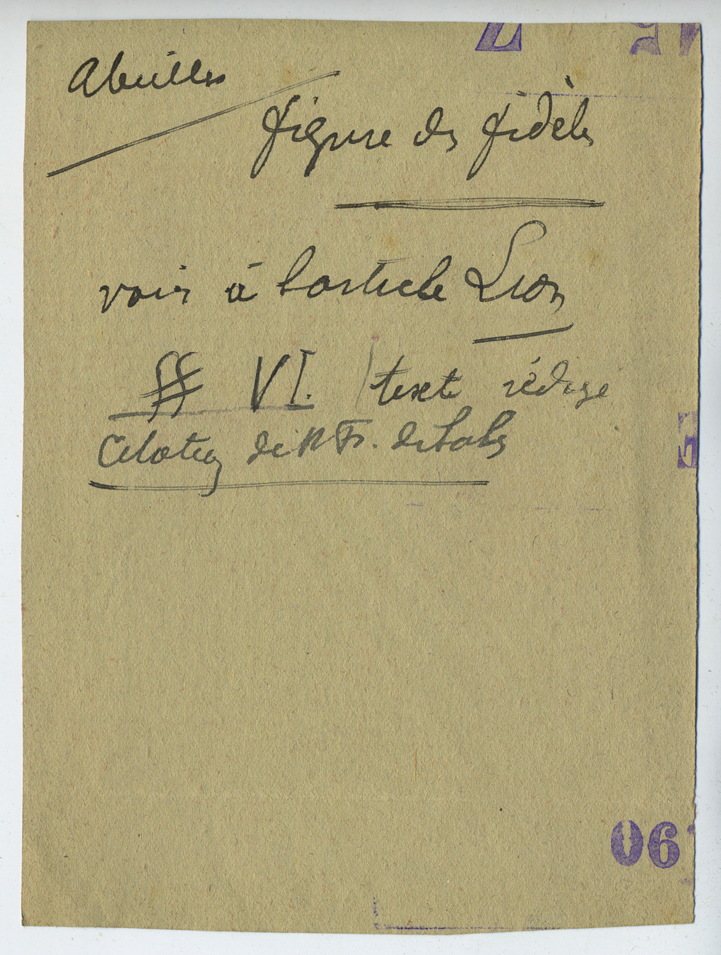 Abeilles
figure des fidèles
voir à l'article Lion
§§ VI. texte rédigé
Citation de St Fr. de Sales
06